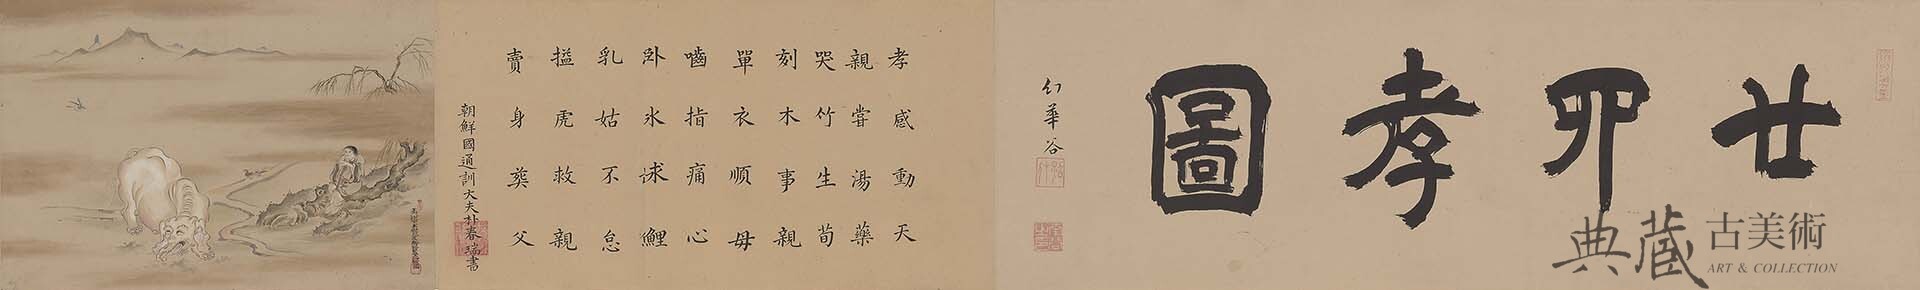 廿四孝圖
幻華谷
孝感動天
親嘗湯藥
哭竹生荀
刻木事親
單衣順母
嚙指痛心
卧氷求鯉
乳姑不怠
搤虎救親
賣身葬父
朝鮮國通訓大夫朴春瑞書
典藏 古美術
ART & COLLECTION